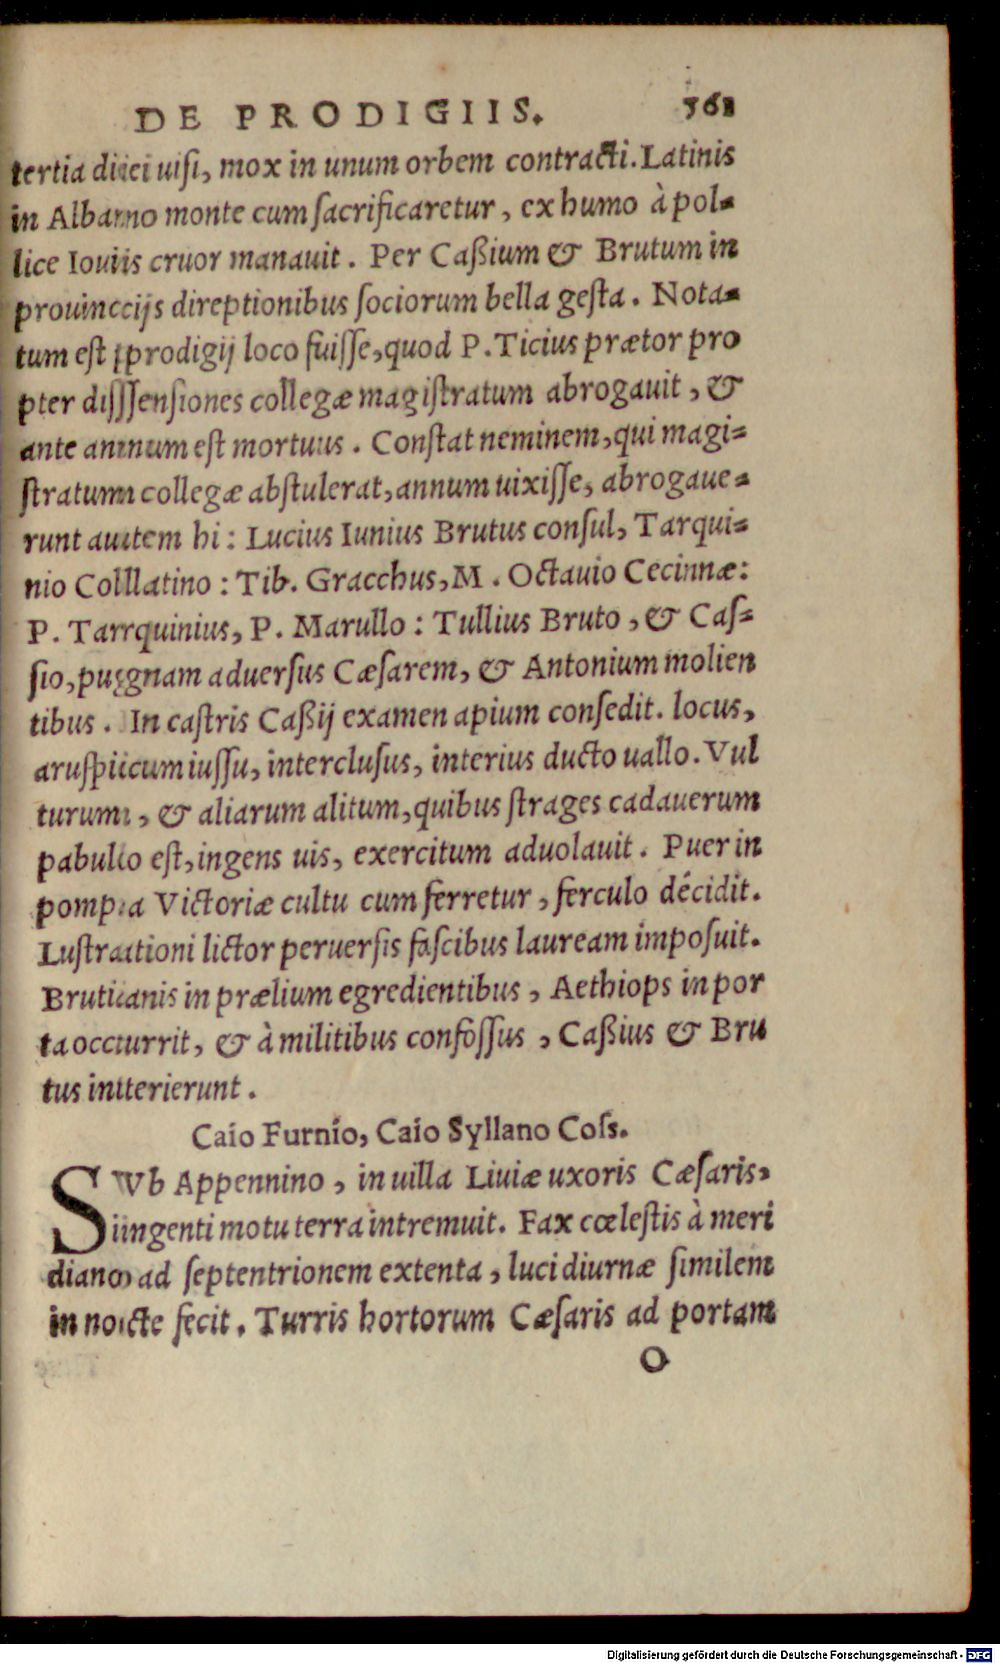 DE PRODIGIIS. 361
tertia diei uiſi, mox in unum orbem contracti. Latinis
in Albano monte cum ſacrificaretur, ex humo à pol-
lice Iouis cruor manauit. Per Caßium & Brutum in
prouincijs direptionibus ſociorum bella geſta. Nota-
tum eſt prodigij loco fuiſſe, quod P. Ticius prætor pro
pter diſſenſiones collegæ magiſtratum abrogauit, &
ante annum eſt mortuus. Conſtat neminem, qui magi-
ſtratum collegæ abſtulerat, annum uixiſſe, abrogaue-
runt autem hi: Lucius Iunius Brutus conſul, Tarqui-
nio Collatino: Tib. Gracchus, M. Octauio Cecinnæ:
P. Tarquinius, P. Marullo: Tullius Bruto, & Caſ-
ſio, pugnam aduerſus Cæſarem, & Antonium molien
tibus. In caſtris Caßij examen apium conſedit. locus,
aruſpicum iuſſu, interclusus, interius ducto uallo. Vul
turum, & aliarum alitum, quibus ſtrages cadauerum
pabulo eſt, ingens uis, exercitum aduolauit. Puer in
pompa Victoriæ cultu cum ferretur, ferculo décidit.
Luſtrationi lictor peruerſis faſcibus lauream impoſuit.
Brutianis in prælium egredientibus, Aethiops in por
ta occurrit, & à militibus confoſſus, Caßius & Bru
tus interierunt.
Caio Furnio, Caio Syllano Coſs.
SVb Appennino, in uilla Liuiæ uxoris Cæſaris,
ingenti motu terra intremuit. Fax cœleſtis à meri
diano ad ſeptentrionem extenta, luci diurnæ ſimilem
in nocte fecit. Turris hortorum Cæſaris ad portam
O
Digitalisierung gefördert durch die Deutsche Forschungsgemeinschaft - DFG